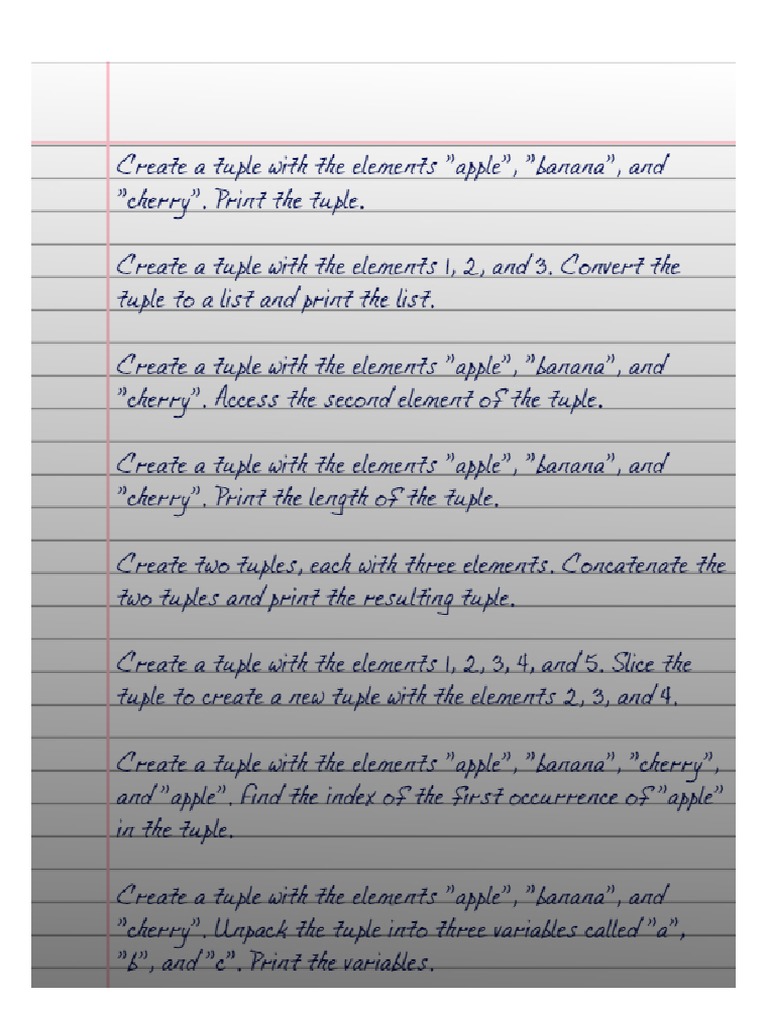 Create a tuple with the elements "apple", "banana", and
"cherry". Print the tuple.
Create a tuple with the elements 1, 2, and 3. Convert the
tuple to a list and print the list.
Create a tuple with the elements "apple", "banana", and
"cherry". Access the second element of the tuple.
Create a tuple with the elements "apple", "banana", and
"cherry". Print the length of the tuple.
Create two tuples, each with three elements. Concatenate the
two tuples and print the resulting tuple.
Create a tuple with the elements 1, 2, 3, 4, and 5. Slice the
tuple to create a new tuple with the elements 2, 3, and 4.
Create a tuple with the elements "apple", "banana", "cherry",
and "apple". Find the index of the first occurrence of "apple"
in the tuple.
Create a tuple with the elements "apple", "banana", and
"cherry". Unpack the tuple into three variables called "a",
"b", and "c". Print the variables.